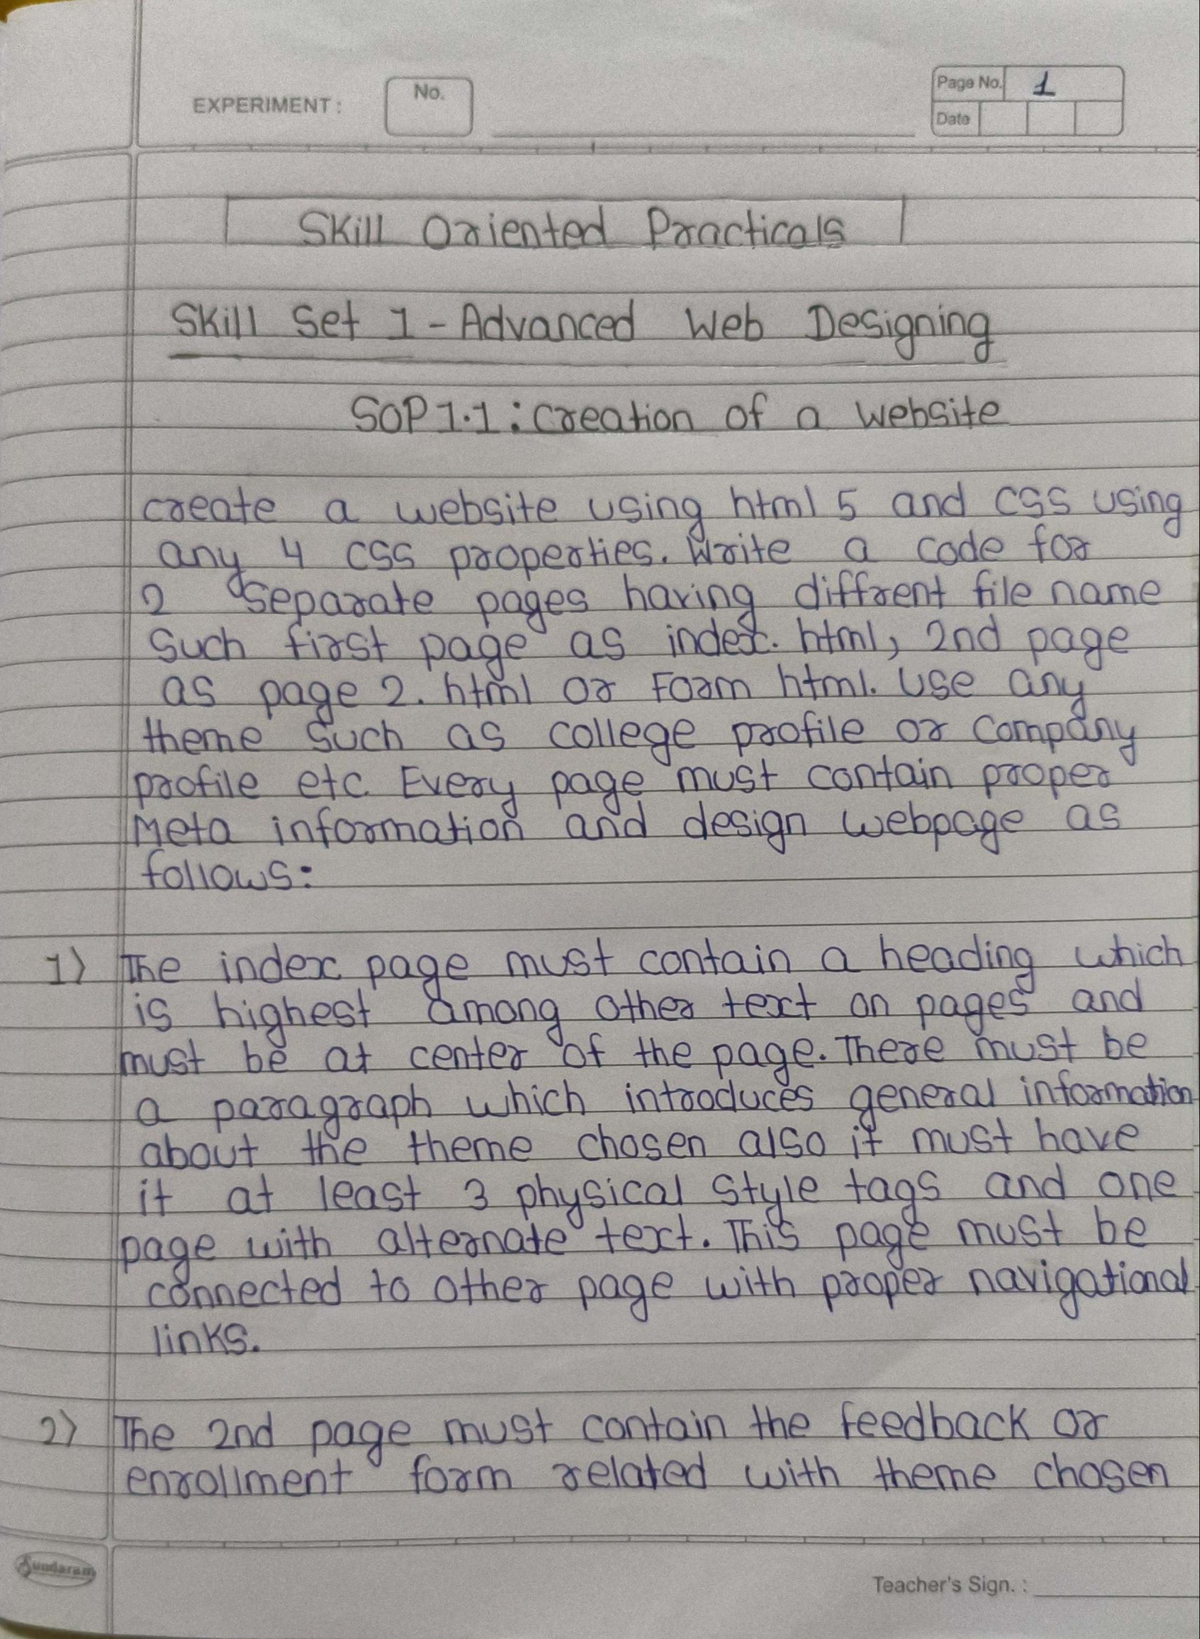 EXPERIMENT :
No.
Page No. 1
Date
Skill Oriented Practicals
Skill Set 1 - Advanced Web Designing
SOP 1.1 : Creation of a Website
create a website using html 5 and CSS using
any 4 CSS properties. Write a code for
2 separate pages having diffrent file name
Such first page as index. html, 2nd page
as page 2. html or Form html. Use any
theme such as college profile or Company
profile etc. Every page must contain proper
Meta information and design webpage as
follows:
1) The index page must contain a heading which
is highest among other text on pages and
must be at center of the page. There must be
a paragraph which introduces general information
about the theme chosen also it must have
it at least 3 physical style tags and one
page with alternate text. This page must be
connected to other page with proper navigational
links.
2) The 2nd page must contain the feedback or
enrollment form related with theme chosen
Sundaram
Teacher's Sign. :